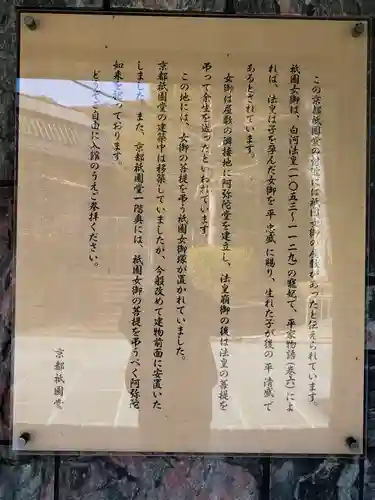 この京都祇園堂の付近には祇園女御の屋敷があったと伝えられています。
祇園女御は、白河法皇(一〇五三〜一一二九)の寵妃で、平家物語(巻六)によ
れば、法皇は子を孕んだ女御を平 忠盛 に賜り、生れた子が後の 平 清盛 で
あるとされています。
女御は屋敷の隣接地に阿弥陀堂を建立し、法皇崩御の後は法皇の菩提を
弔って余生を送ったといわれています。
この地には、女御の菩提を弔う祇園女御塚が置かれていました。
京都祇園堂の建築中は移築していましたが、今般改めて建物前面に安置いた
しました。また、京都祇園堂一階奥には、祇園女御の菩提を弔うべく阿弥陀
如来を祀っております。
どうぞご自由に入館のうえご参拝ください。
京都祇園堂